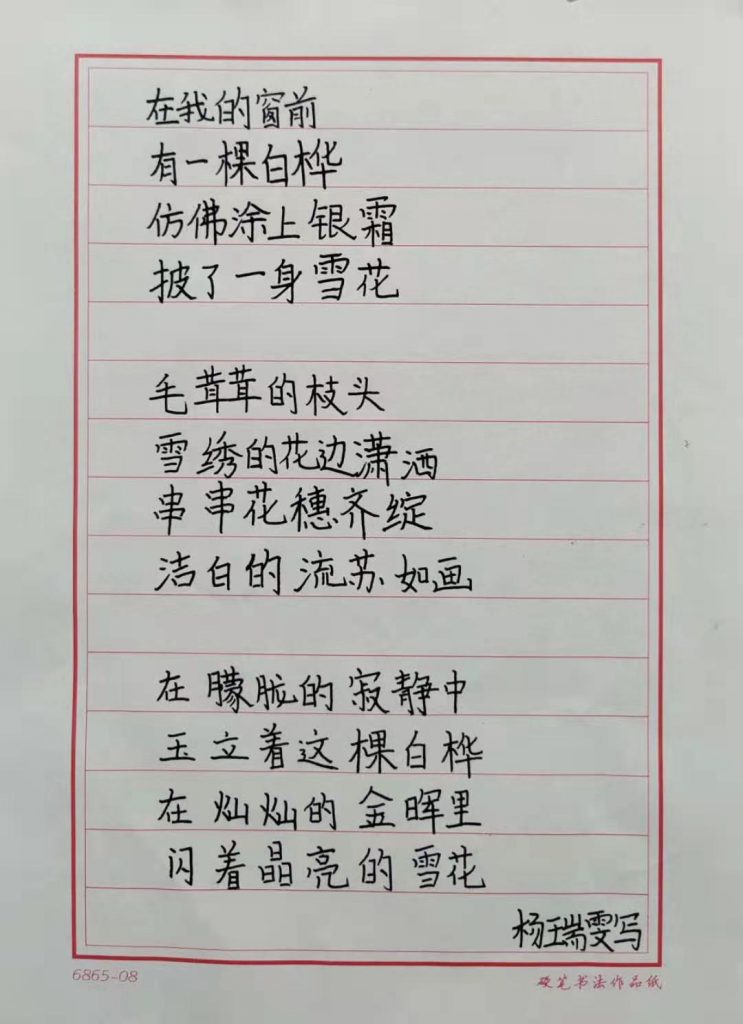 在我的窗前
有一棵白桦
仿佛涂上银霜
披了一身雪花
毛茸茸的枝头
雪绣的花边潇洒
串串花穗齐绽
洁白的流苏如画
在朦胧的寂静中
玉立着这棵白桦
在灿灿的金晖里
闪着晶亮的雪花
杨瑞雯写
6865-08
硬笔书法作品纸